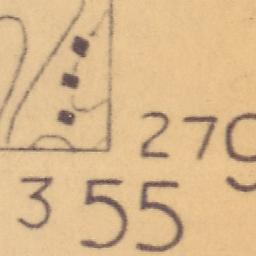 279
355